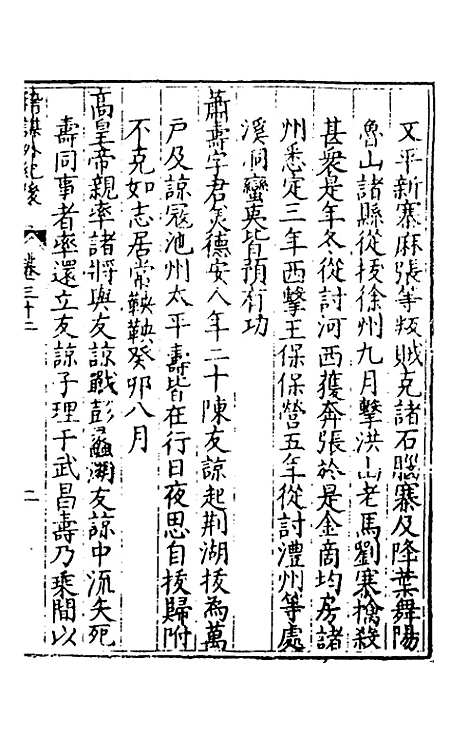 又平新寨麻張等叛賊克諸石腦寨及降葉舞陽
魯山諸縣從援徐州九月擊洪山老馬劉寨擒殺
甚衆是年冬從討河西獲奔張於是金商均房諸
州悉定三年西擊王保保營五年從討澧州等處
溪洞蠻夷皆預有功
蕭壽字君美德安人年二十陳友諒起荆湖拔為萬
戶及諒寇池州太平壽皆在行日夜思自拔歸附
不克如志居常鞅鞅癸卯八月
高皇帝親率諸將與友諒戰彭蠡湖友諒中流矢死
壽同事者率還立友諒子理于武昌壽乃乘間以
卷三十二
二